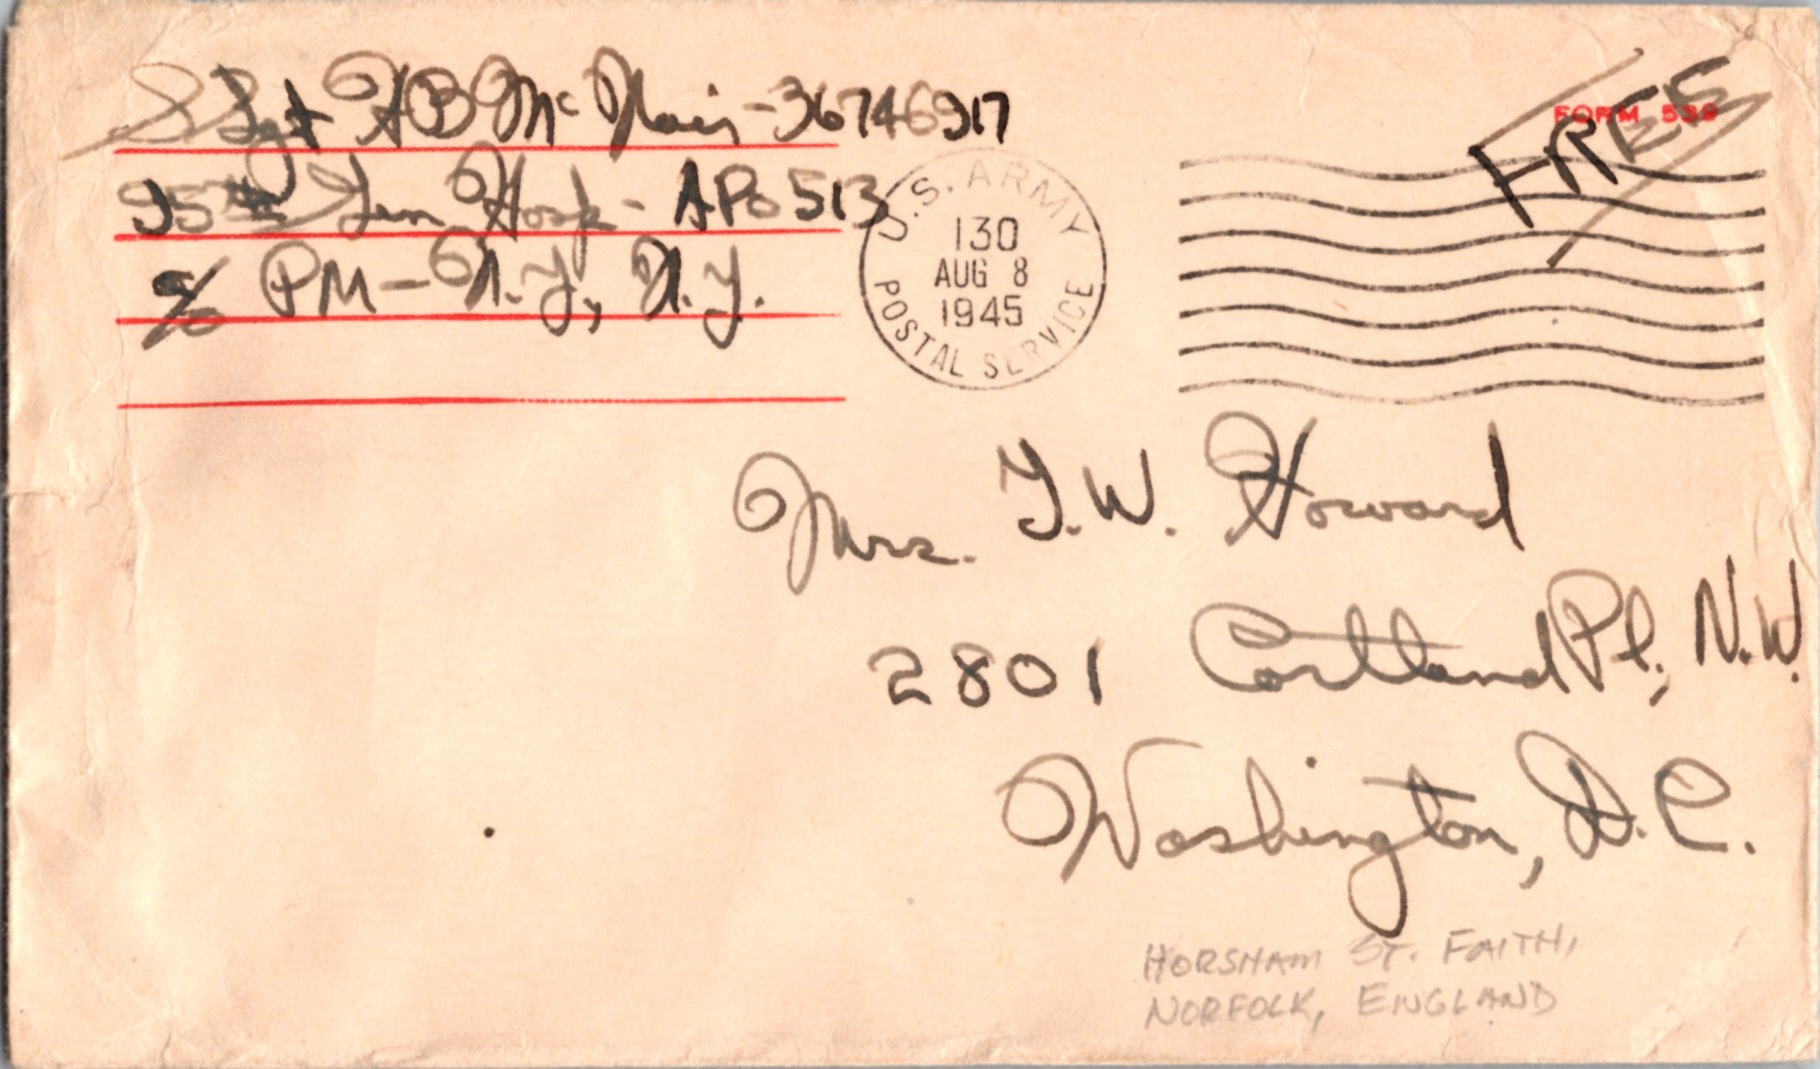 S Sgt HB McNair - 36746917
95th Gen Hosp - APO 513
c/o PM - N.Y., N.Y.
U.S. ARMY
130
AUG 8
1945
POSTAL SERVICE
FORM 539
FREE
Mrs. T.W. Howard
2801 Cortland Pl., N.W.
Washington, D.C.
HORSHAM ST. FAITH,
NORFOLK, ENGLAND